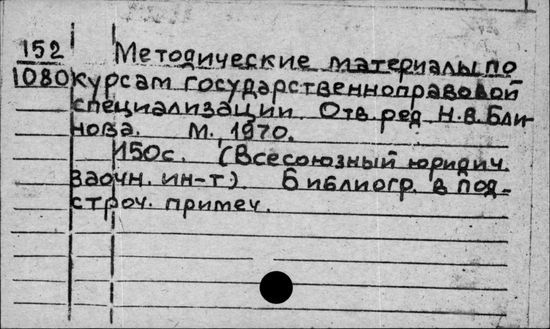 152
1080
Методические материалы по
курсам государственноправовой
специализации Отв. ред Н.В.Бли-
нова. М., 1970.
150с. (Всесоюзный юридич.
заочн. ин-т). Библиогр. в под-
строч. примеч.